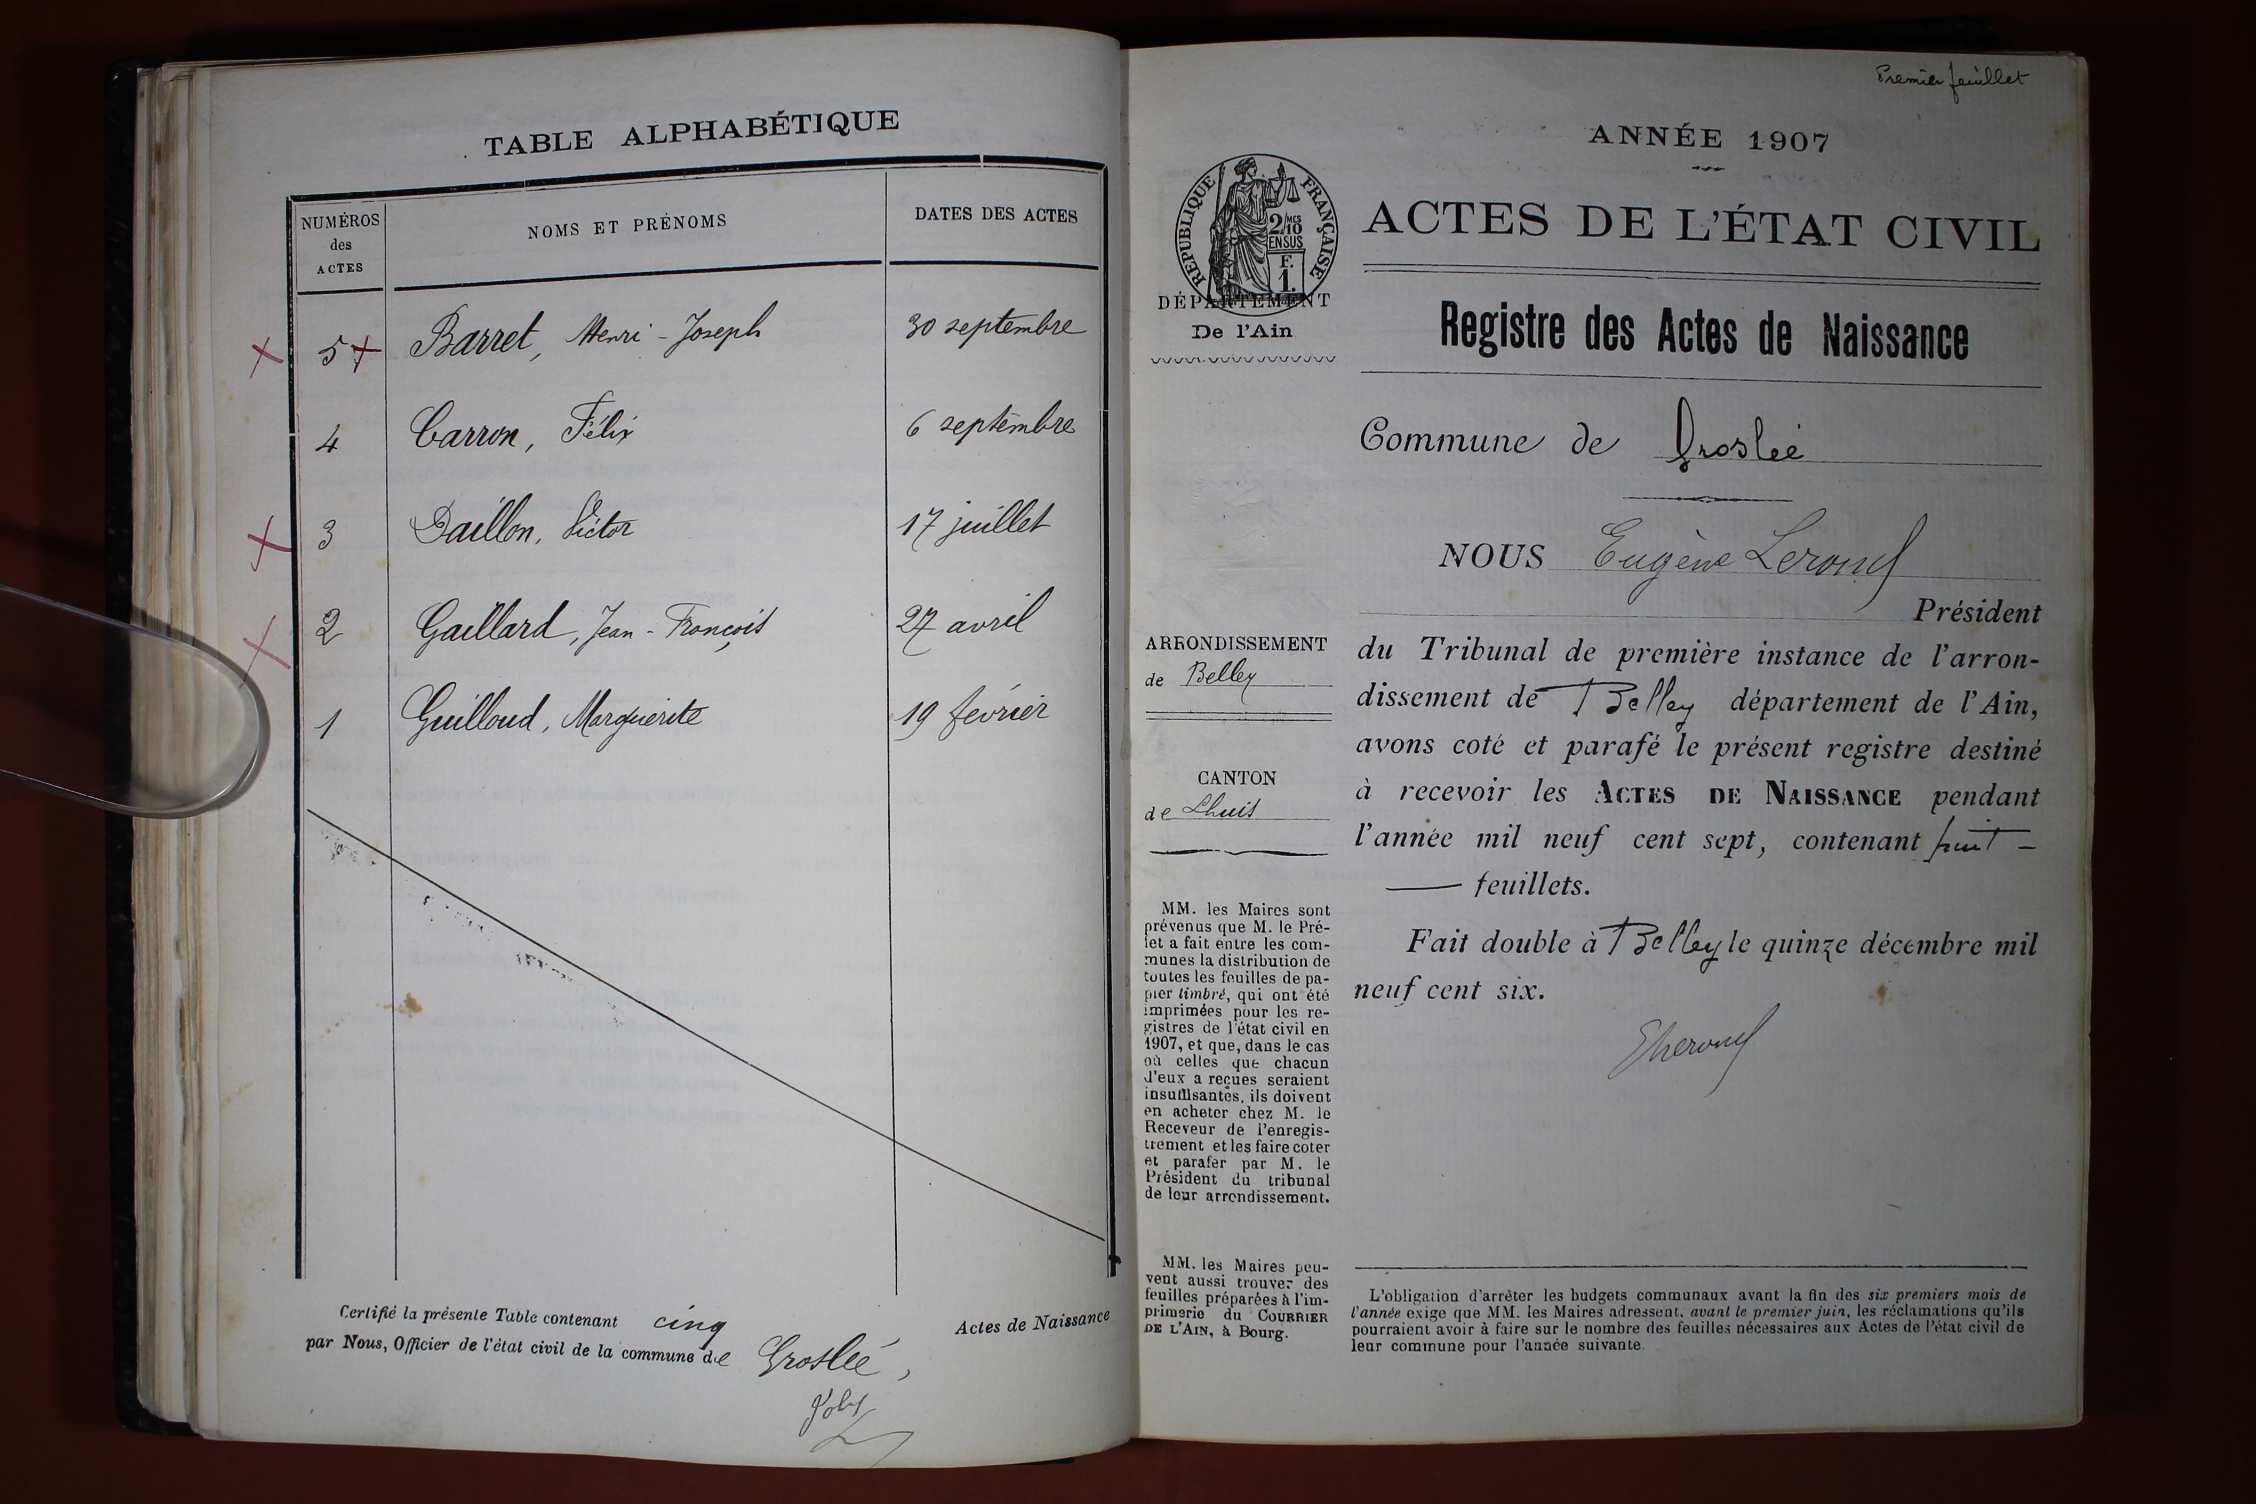 TABLE ALPHABÉTIQUE
NUMÉROS
des
ACTES
NOMS ET PRÉNOMS
DATES DES ACTES
5 Barret, Henri-Joseph 30 septembre
4 Carron, Félix 6 septembre
3 Paillon, Victor 17 juillet
2 Gaillard, Jean-François 27 avril
1 Guilloud, Marguerite 19 février
Certifié la présente Table contenant cinq Actes de Naissance
par Nous, Officier de l'état civil de la commune de Groslée,
Premier feuillet
ANNÉE 1907
RÉPUBLIQUE FRANÇAISE
2/10 MES
EN SUS
F.
1.
DÉPARTEMENT
De l'Ain
ACTES DE L'ÉTAT CIVIL
Registre des Actes de Naissance
Commune de Groslée
NOUS Eugène Lerond
Président
du Tribunal de première instance de l'arron-
dissement de Belley département de l'Ain,
avons coté et parafé le présent registre destiné
à recevoir les ACTES DE NAISSANCE pendant
l'année mil neuf cent sept, contenant huit —
— feuillets.
Fait double à Belley le quinze décembre mil
neuf cent six.
ARRONDISSEMENT
de Belley
CANTON
de Lhuis
MM. les Maires sont
prévenus que M. le Pré-
fet a fait entre les com-
munes la distribution de
toutes les feuilles de pa-
pier timbré, qui ont été
imprimées pour les re-
gistres de l'état civil en
1907, et que, dans le cas
où celles que chacun
d'eux a reçues seraient
insuffisantes, ils doivent
en acheter chez M. le
Receveur de l'enregis-
trement et les faire coter
et parafer par M. le
Président du tribunal
de leur arrondissement.
MM. les Maires peu-
vent aussi trouver des
feuilles préparées à l'im-
primerie du COURRIER
DE L'AIN, à Bourg.
L'obligation d'arrêter les budgets communaux avant la fin des six premiers mois de
l'année exige que MM. les Maires adressent, avant le premier juin, les réclamations qu'ils
pourraient avoir à faire sur le nombre des feuilles nécessaires aux Actes de l'état civil de
leur commune pour l'année suivante.